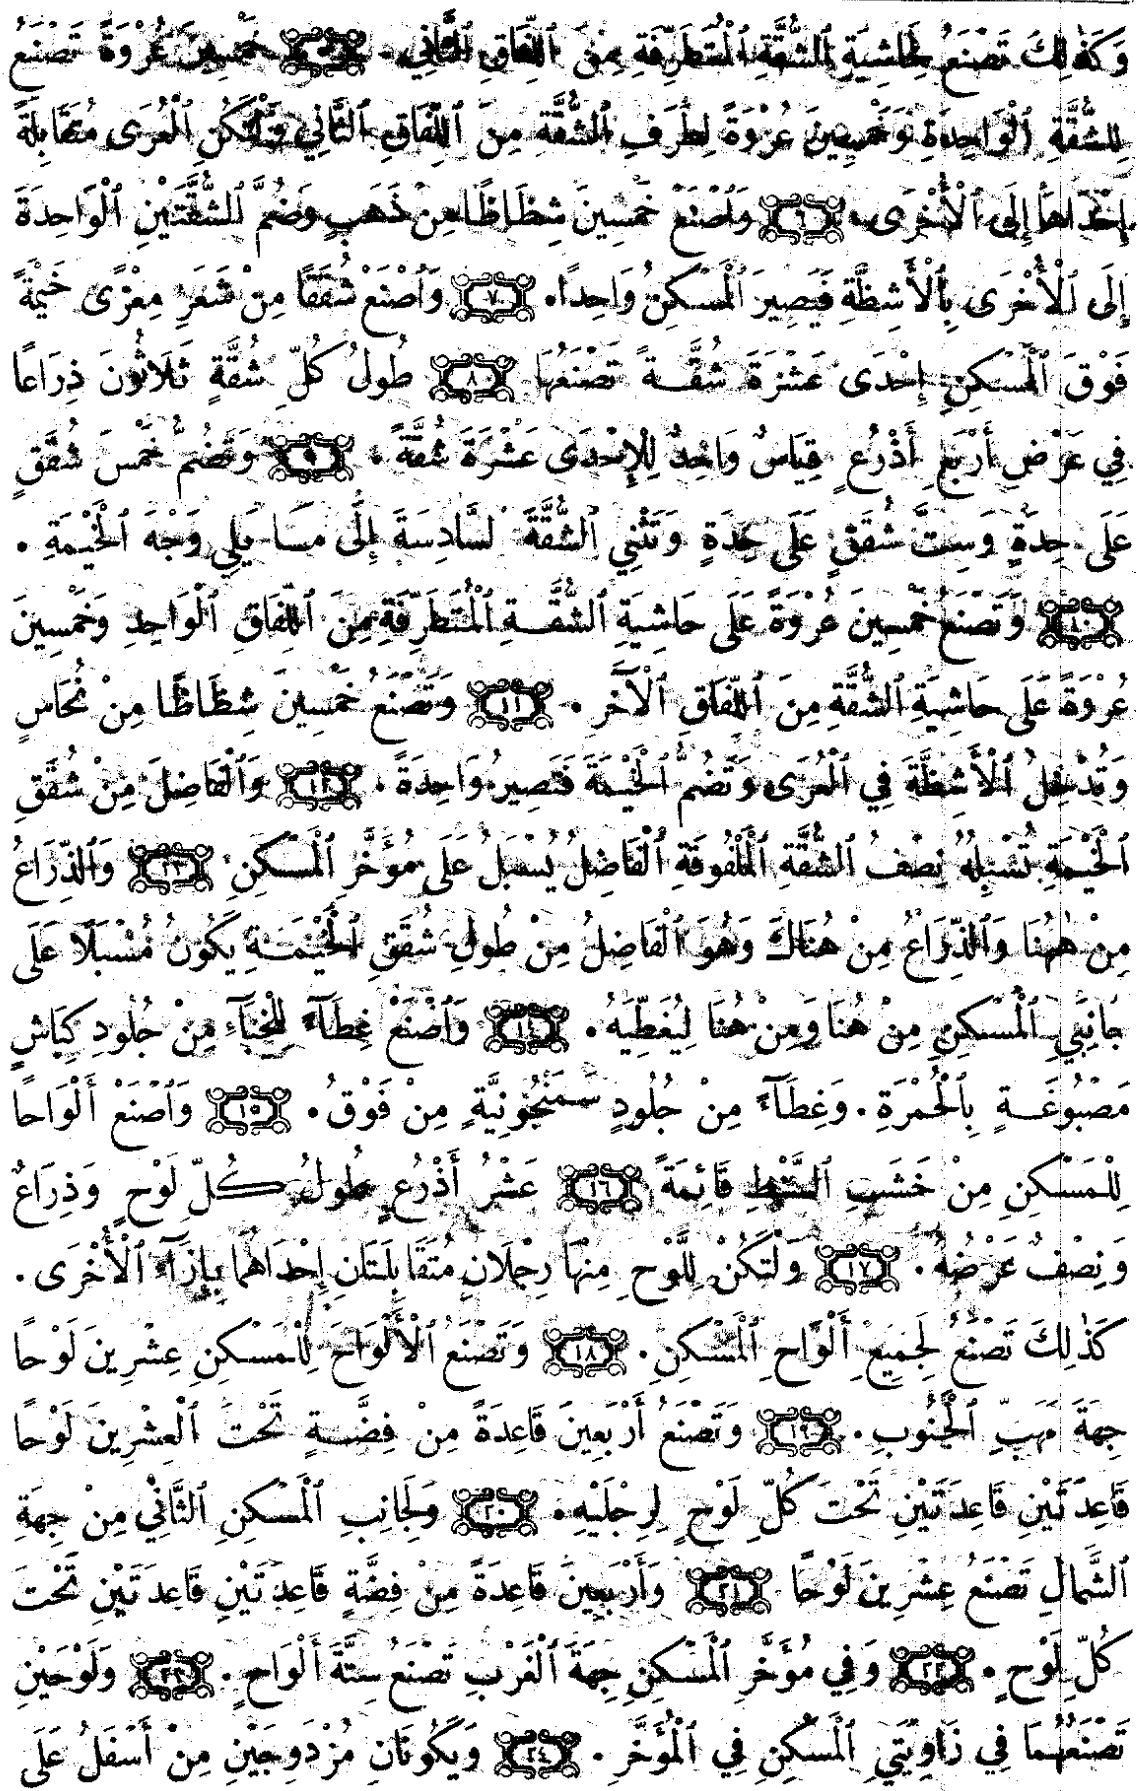 وَكَذٰلِكَ تَصْنَعُ لِحَاشِيَةِ ٱلشُّقَّةِ ٱلْمُتَطَرِّفَةِ مِنَ ٱللِّفَاقِ ٱلثَّانِي. ٥ خَمْسِينَ عُرْوَةً تَصْنَعُ
لِلشُّقَّةِ ٱلْوَاحِدَةِ وَخَمْسِينَ عُرْوَةً لِطَرَفِ ٱلشُّقَّةِ مِنَ ٱللِّفَاقِ ٱلثَّانِي وَلْتَكُنِ ٱلْعُرَى مُتَقَابِلَةً
إِحْدَاهَا إِلَى ٱلْأُخْرَى. ٦ وَٱصْنَعْ خَمْسِينَ شِظَاظًا مِنْ ذَهَبٍ وَضُمَّ ٱلشُّقَّتَيْنِ ٱلْوَاحِدَةَ
إِلَى ٱلْأُخْرَى بِٱلْأَشِظَّةِ فَيَصِيرَ ٱلْمَسْكِنُ وَاحِدًا. ٧ وَٱصْنَعْ شُقَقًا مِنْ شَعَرِ مِعْزًى خَيْمَةً
فَوْقَ ٱلْمَسْكِنِ إِحْدَى عَشْرَةَ شُقَّةً تَصْنَعُهَا ٨ طُولُ كُلِّ شُقَّةٍ ثَلَاثُونَ ذِرَاعًا
فِي عَرْضِ أَرْبَعِ أَذْرُعٍ قِيَاسٌ وَاحِدٌ لِلْإِحْدَى عَشْرَةَ شُقَّةً. ٩ وَتَضُمُّ خَمْسَ شُقَقٍ
عَلَى حِدَةٍ وَسِتَّ شُقَقٍ عَلَى حِدَةٍ وَتَثْنِي ٱلشُّقَّةَ ٱلسَّادِسَةَ إِلَى مَا يَلِي وَجْهَ ٱلْخَيْمَةِ.
١٠ وَتَصْنَعُ خَمْسِينَ عُرْوَةً عَلَى حَاشِيَةِ ٱلشُّقَّةِ ٱلْمُتَطَرِّفَةِ مِنَ ٱللِّفَاقِ ٱلْوَاحِدِ وَخَمْسِينَ
عُرْوَةً عَلَى حَاشِيَةِ ٱلشُّقَّةِ مِنَ ٱللِّفَاقِ ٱلْآخَرِ. ١١ وَتَصْنَعُ خَمْسِينَ شِظَاظًا مِنْ نُحَاسٍ
وَتُدْخِلُ ٱلْأَشِظَّةَ فِي ٱلْعُرَى وَتَضُمُّ ٱلْخَيْمَةَ فَتَصِيرُ وَاحِدَةً. ١٢ وَٱلْفَاضِلُ مِنْ شُقَقِ
ٱلْخَيْمَةِ تُسْبِلُهُ نِصْفُ ٱلشُّقَّةِ ٱلْمَلْفُوقَةِ ٱلْفَاضِلُ يُسْبَلُ عَلَى مُؤَخَّرِ ٱلْمَسْكِنِ. ١٣ وَٱلذِّرَاعُ
مِنْ هٰهُنَا وَٱلذِّرَاعُ مِنْ هُنَاكَ وَهُوَ ٱلْفَاضِلُ مِنْ طُولِ شُقَقِ ٱلْخَيْمَةِ يَكُونُ مُسْبَلًا عَلَى
جَانِبَيِ ٱلْمَسْكِنِ مِنْ هُنَا وَمِنْ هُنَا لِيُغَطِّيَهُ. ١٤ وَٱصْنَعْ غِطَآءً لِلْخِبَآءِ مِنْ جُلُودِ كِبَاشٍ
مَصْبُوغَةٍ بِٱلْحُمْرَةِ. وَغِطَآءً مِنْ جُلُودٍ سَمَنْجُونِيَّةٍ مِنْ فَوْقُ. ١٥ وَٱصْنَعْ أَلْوَاحًا
لِلْمَسْكِنِ مِنْ خَشَبِ ٱلسَّنْطِ قَائِمَةً ١٦ عَشْرُ أَذْرُعٍ طُولُ كُلِّ لَوْحٍ وَذِرَاعٌ
وَنِصْفٌ عَرْضُهُ. ١٧ وَلْتَكُنْ لِلَّوْحِ مِنْهَا رِجْلَانِ مُتَقَابِلَتَانِ إِحْدَاهُمَا بِإِزَآءِ ٱلْأُخْرَى.
كَذٰلِكَ تَصْنَعُ لِجَمِيعِ أَلْوَاحِ ٱلْمَسْكِنِ. ١٨ وَتَصْنَعُ ٱلْأَلْوَاحَ لِلْمَسْكِنِ عِشْرِينَ لَوْحًا
جِهَةَ مَهَبِّ ٱلْجَنُوبِ. ١٩ وَتَصْنَعُ أَرْبَعِينَ قَاعِدَةً مِنْ فِضَّةٍ تَحْتَ ٱلْعِشْرِينَ لَوْحًا
قَاعِدَتَيْنِ قَاعِدَتَيْنِ تَحْتَ كُلِّ لَوْحٍ لِرِجْلَيْهِ. ٢٠ وَلِجَانِبِ ٱلْمَسْكِنِ ٱلثَّانِي مِنْ جِهَةِ
ٱلشَّمَالِ تَصْنَعُ عِشْرِينَ لَوْحًا ٢١ وَأَرْبَعِينَ قَاعِدَةً مِنْ فِضَّةٍ قَاعِدَتَيْنِ قَاعِدَتَيْنِ تَحْتَ
كُلِّ لَوْحٍ. ٢٢ وَفِي مُؤَخَّرِ ٱلْمَسْكِنِ جِهَةَ ٱلْغَرْبِ تَصْنَعُ سِتَّةَ أَلْوَاحٍ. ٢٣ وَلَوْحَيْنِ
تَصْنَعُهُمَا فِي زَاوِيَتَيِ ٱلْمَسْكِنِ فِي ٱلْمُؤَخَّرِ. ٢٤ وَيَكُونَانِ مُزْدَوِجَيْنِ مِنْ أَسْفَلُ عَلَى